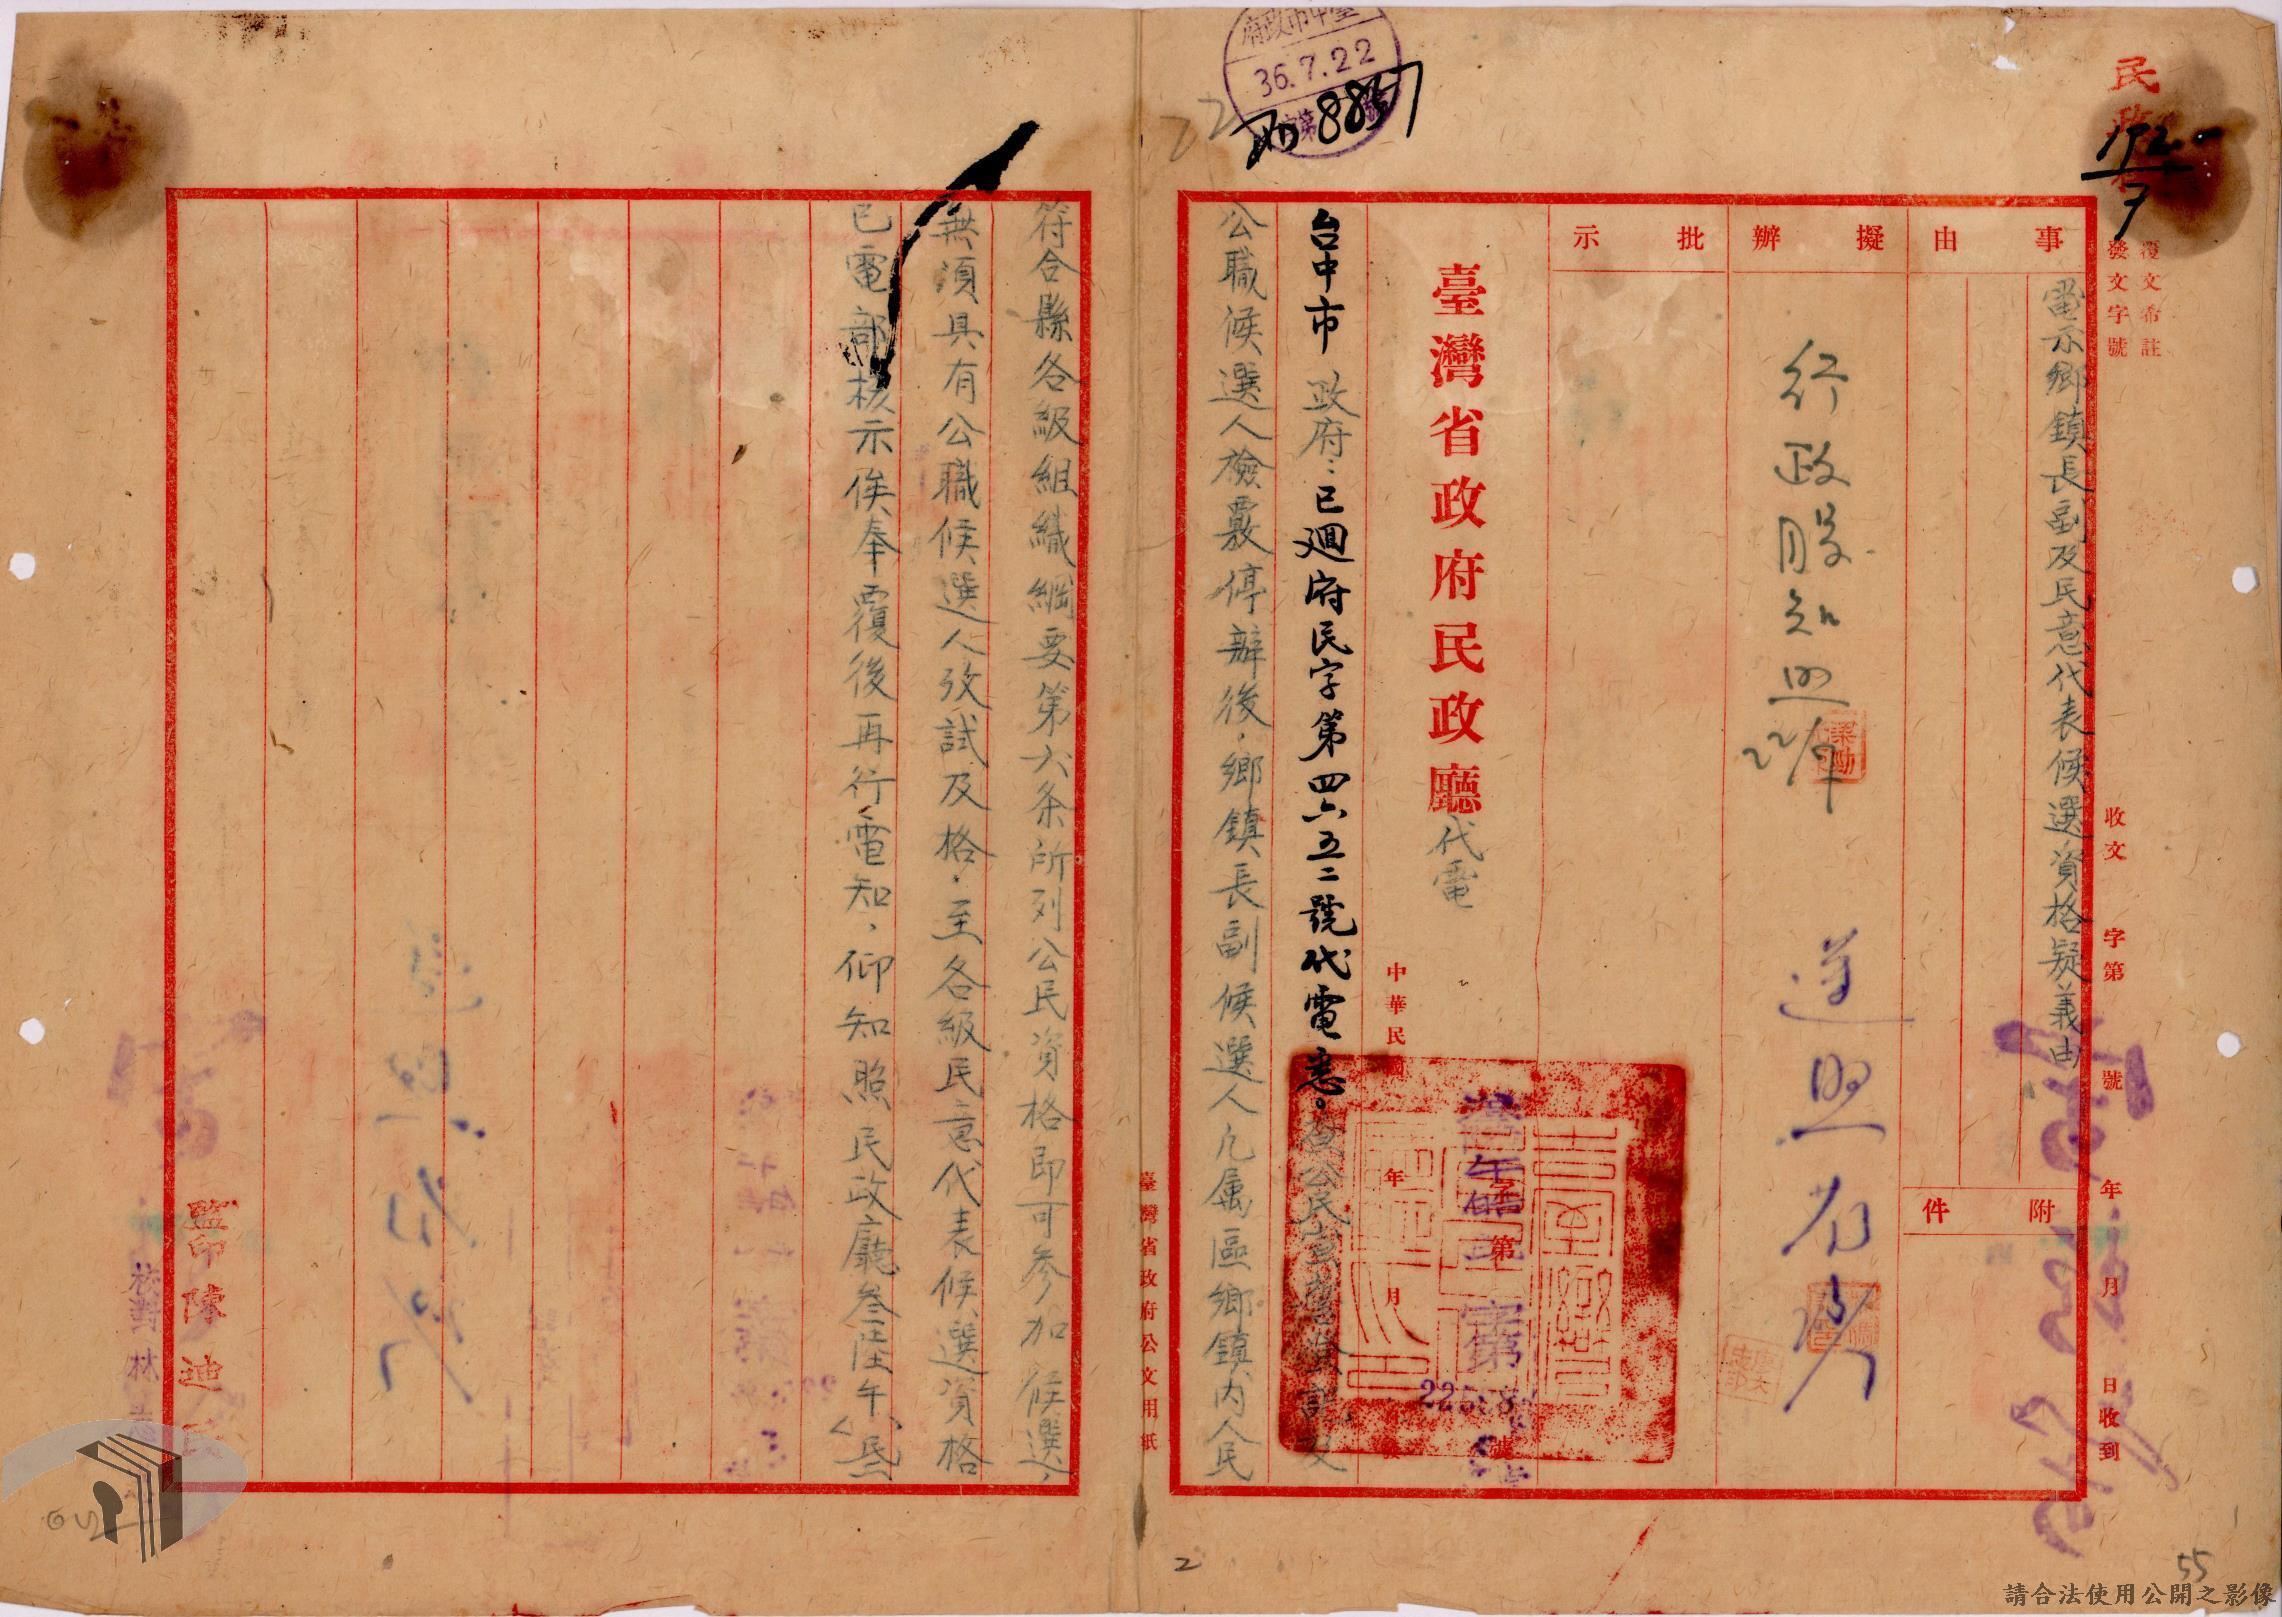 民政
覆文希註
發文字號
收文 字第 號 年 月 日收到
事由
電示鄉鎮長副及民意代表候選資格疑義由
附件
擬辦
行政股知照
遵照
批示
臺灣省政府民政廳代電
中華民國 年 月
第 號
台中市政府：已迴府民字第四六五二號代電悉。查公民宣誓登記及
公職候選人檢覈停辦後，鄉鎮長副候選人凡屬區鄉鎮內人民
符合縣各級組織綱要第六条所列公民資格即可參加候選，
無須具有公職候選人攷試及格，至各級民意代表候選資格
已電部核示俟奉覆後再行電知，仰知照民政廳叁陸午
監印陳迪
校對林
臺灣省政府公文用紙
臺中市政府
36.7.22
第 號
8857
22
2
55
請合法使用公開之影像